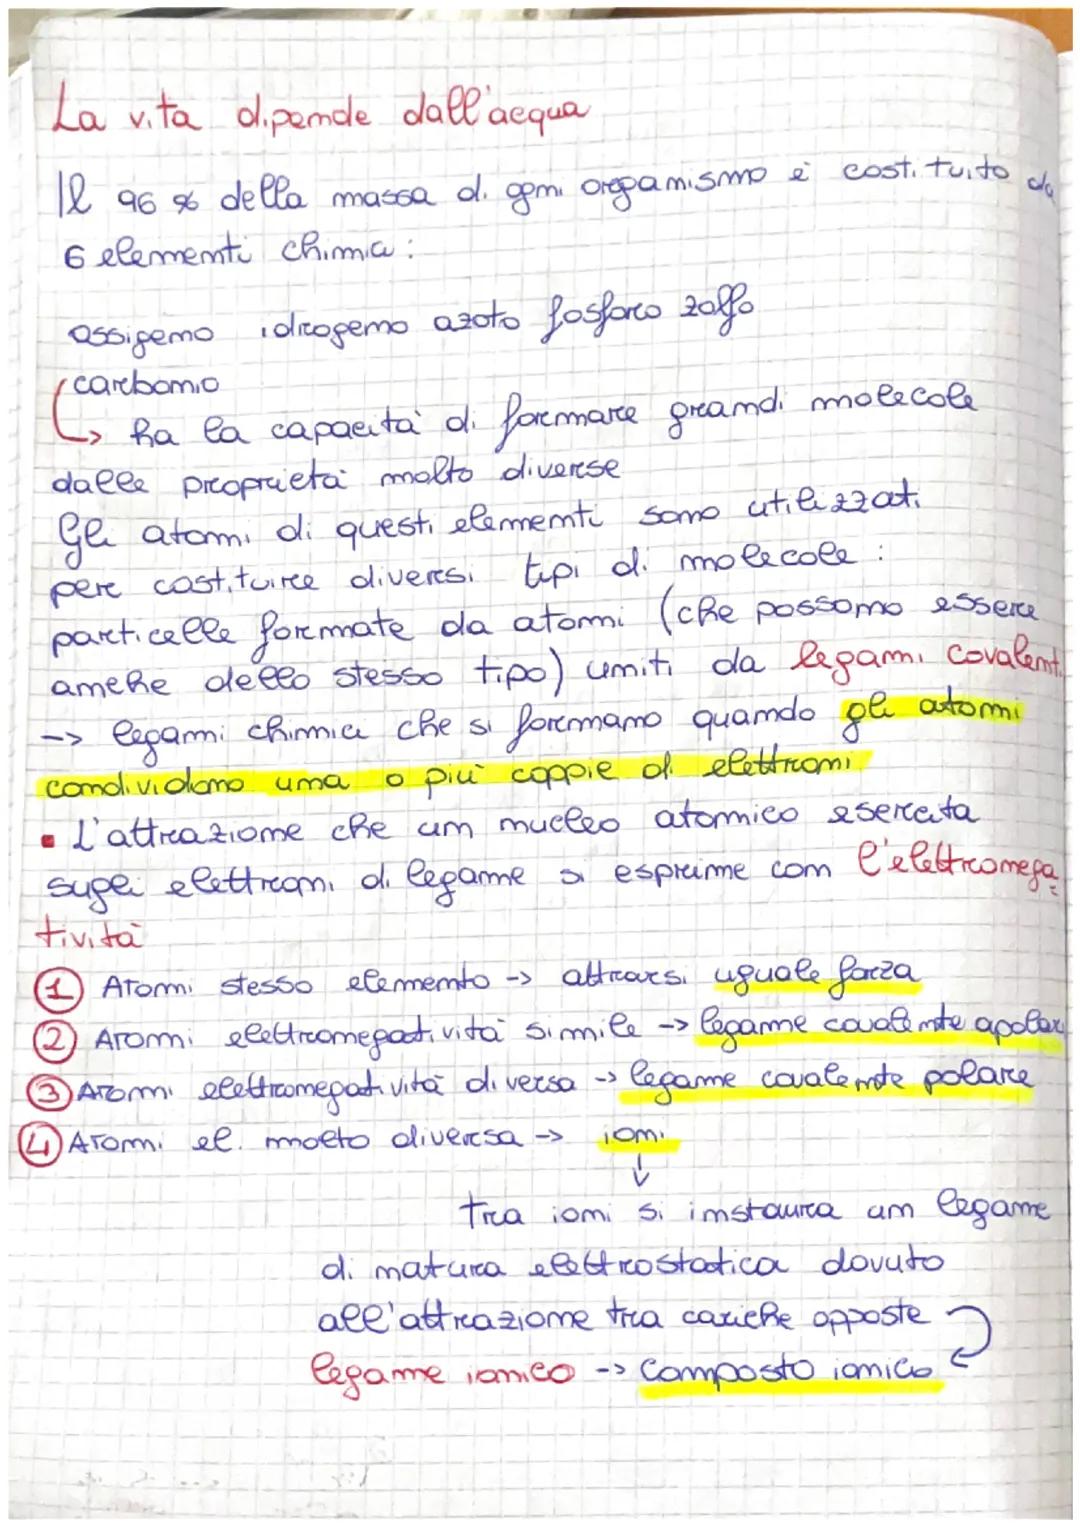 La vita dipende dall'acqua
Il 96 % della massa di ogni organismo è costituito da
6 elementi chimici :
ossigeno idrogeno azoto fosforo zolfo
carbonio
↳ ha la capacità di formare grandi molecole
dalle proprietà molto diverse
Gli atomi di questi elementi sono utilizzati
per costituire diversi tipi di molecole :
particelle formate da atomi (che possono essere
anche dello stesso tipo) uniti da legami covalenti
-> legami chimici che si formano quando gli atomi
condividono una o più coppie di elettroni
▪ L'attrazione che un nucleo atomico esercita
sugli elettroni di legame si esprime con l'elettronega
tività
1 Atomi stesso elemento -> attrarsi uguale forza
2 Atomi elettronegatività simile -> legame covalente apolar
3 Atomi elettronegatività diversa -> legame covalente polare
4 Atomi el. molto diversa -> ioni
↓
tra ioni si instaura un legame
di natura elettrostatica dovuto
all'attrazione tra cariche opposte
legame ionico -> composto ionico